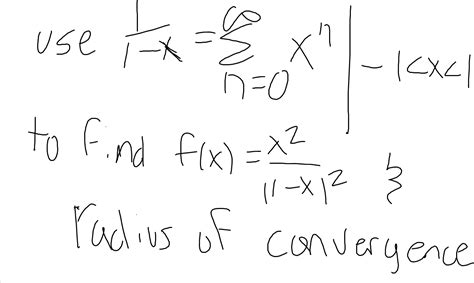 use 1/(1-x) = ∞ Σ n=0 x^n | -1<x<1
to find f(x) = x^2/(1-x)^2 &
radius of convergence